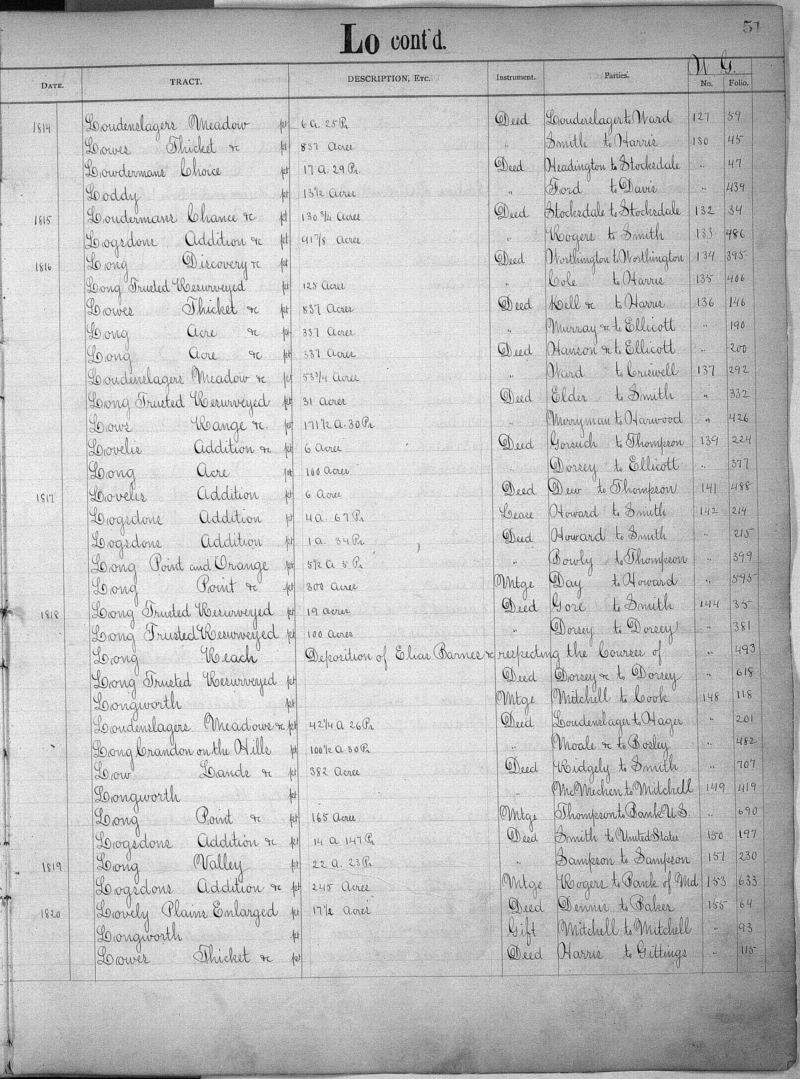 51
Lo cont'd.
W G.
DATE. TRACT. DESCRIPTION, ETC. Instrument. Parties. No. Folio.
1814 Loudenslagers Meadow pt 6 a. 25 Ps Deed Louderslager to Ward 127 59
Lowes Thicket &c pt 837 Acres " Smith to Harris 130 45
Lowdermans Choice pt 17 a. 29 Ps. Deed Headington to Stocksdale " 47
Loddy pt 13 1/2 Acres " Ford to Davis " 439
1815 Loudermans Chance &c pt 130 3/4 Acres Deed Stocksdale to Stocksdale 132 34
Logsdons Addition &c pt 41 7/8 Acres " Rogers to Smith 133 486
1816 Long Discovery &c pt Deed Worthington to Worthington 134 395
Long Trusted Resurveyed pt 125 Acres " Cole to Harris 135 406
Lowes Thicket &c pt 837 Acres Deed Kell &c to Harris 136 146
Long Acre &c pt 337 Acres " Murray &c to Ellicott 190
Long Acre &c pt 337 Acres Deed Hanson &c to Ellicott " 200
Loudenslagers Meadow &c pt 53 1/4 Acres " Ward to Criswell 137 292
Long Trusted Resurveyed pt 31 Acres Deed Elder to Smith " 332
Lows Range &c. pt 171 1/2 a. 30 Ps " Merryman to Harwood " 426
Lovells Addition &c pt 6 Acres Deed Gorsuch to Thompson 139 224
Long Acre pt 160 Acres " Dorsey to Ellicott " 377
1817 Lovells Addition pt 6 Acres Deed Dew to Thompson 141 488
Logsdons Addition pt 4 a. 67 Ps Lease Howard to Smith 142 214
Logsdons Addition pt 1 a. 34 Ps Deed Howard to Smith " 215
Long Point and Orange pt 5 1/2 a 5 Ps " Bowly to Thompson " 399
Long Point &c pt 300 Acres Mtge Day to Howard " 595
1818 Long Trusted Resurveyed pt 19 acres Deed Gore to Smith 144 35
Long Trusted Resurveyed pt 100 acres " Dorsey to Dorsey " 381
Long Reach Deposition of Elias Barnes &c respecting the Courses of " 493
Long Trusted Resurveyed pt Deed Dorsey &c to Dorsey " 618
Longworth pt Mtge Mitchell to Cook 148 118
Loudenslagers Meadows &c pt 42 1/4 a 26 Ps Deed Loudenslager to Hager " 201
Long Crandon on the Hills pt 100 1/2 a 30 Ps " Moale &c to Bosley " 482
Low Lands &c pt 382 Acres Deed Ridgely to Smith " 707
Longworth pt " McMechen to Mitchell 149 419
Long Point &c pt 165 Acres Mtge Thompson to Bank U.S. " 690
Logsdons Addition &c pt 14 a 147 Ps Deed Smith to United States 150 197
1819 Long Valley pt 22 a. 23 Ps " Sampson to Sampson 151 230
Logsdons Addition &c pt 245 Acres Mtge Rogers to Bank of Md 153 633
1820 Lovely Plains Enlarged pt 17 1/2 Acres Deed Dennis to Baker 155 64
Longworth pt Gift Mitchell to Mitchell " 93
Lowes Thicket &c pt Deed Harris to Gittings " 115